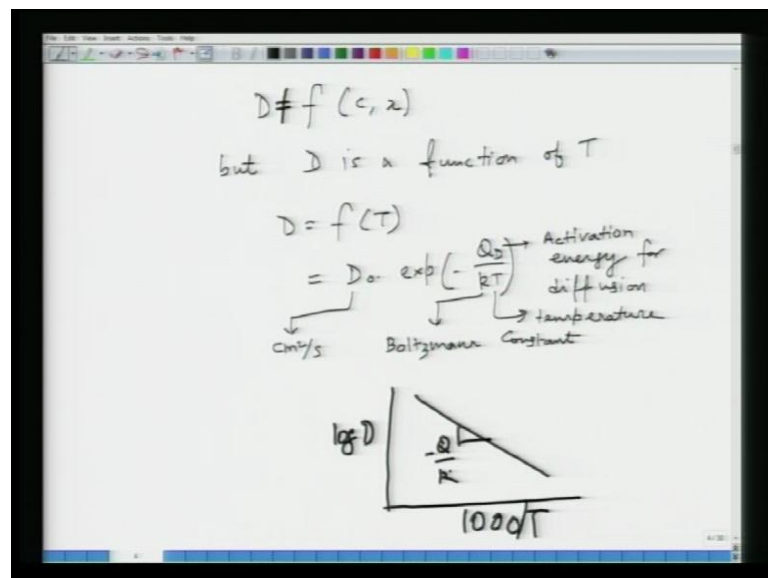 File Edit View Insert Actions Tools Help
D ≠ f (c, x)
but D is a function of T
D = f(T)
= D₀. exp(- Q_D / kT)
Activation energy for diffusion
temperature
cm²/s
Boltzmann Constant
log D
-Q/k
1000/T